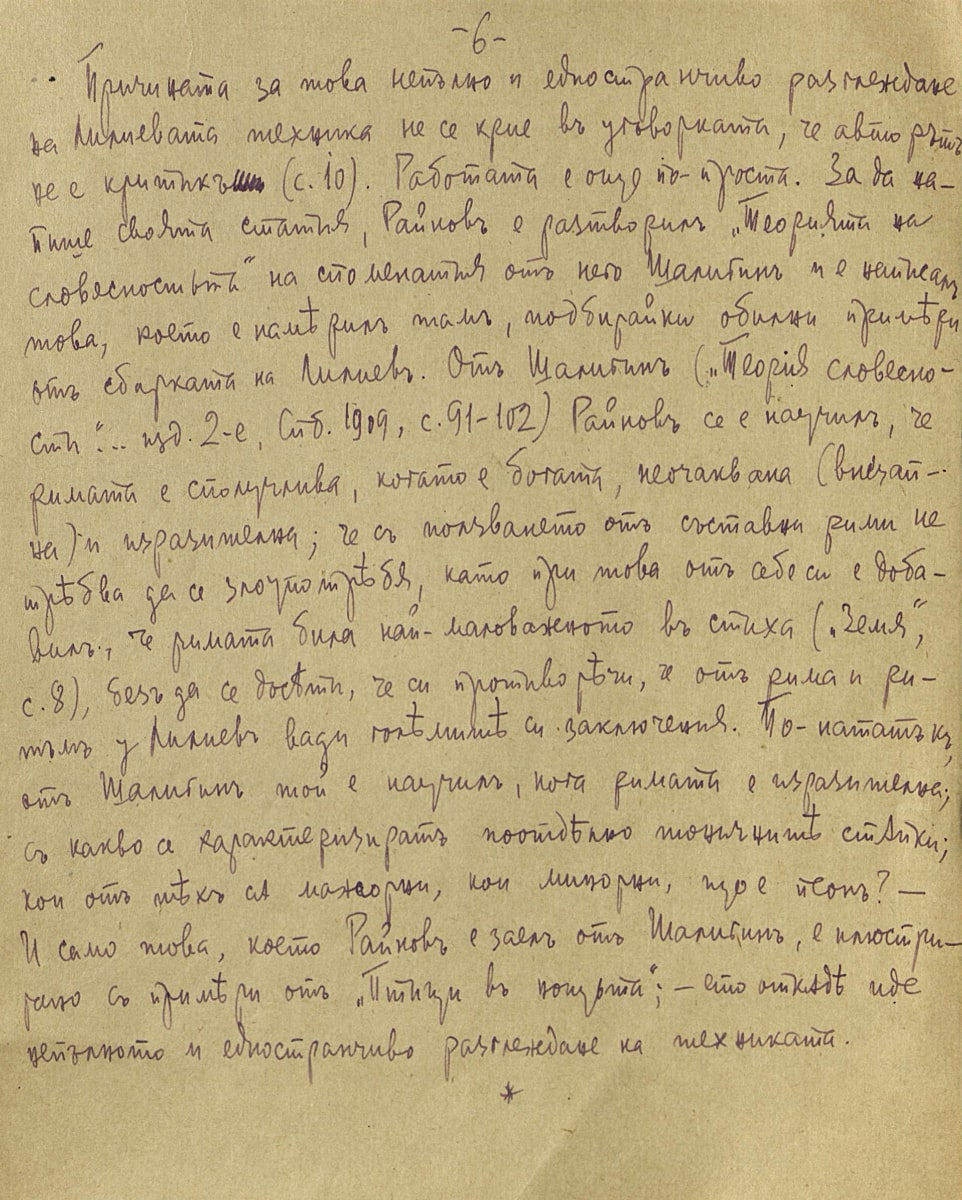 -6-
Причината за това непълно и едностранчиво разглеждане
на Лилиевата техника не се крие въ уговорката, че авторътъ
не е критикъ (с. 10). Работата е още по-проста. За да на-
пише своята статия, Райновъ е разтворилъ „Теорията на
словесностьта“ на споменатия отъ него Шалигинъ и е написалъ
това, което е намѣрилъ тамъ, подбирайки обилни примѣри
отъ сбирката на Лилиевъ. Отъ Шалигинъ („Теорія словесно-
сти“... изд. 2-е, Спб. 1909, с. 91-102) Райновъ се е научилъ, че
римата е сполучлива, когато е богата, неочаквана (внезап-
на) и изразителна; че съ ползването отъ съставни рими не
трѣбва да се злоупотрѣбя, като при това отъ себе си е доба-
вилъ, че римата била най-маловажното въ стиха („Земя“,
с. 8), безъ да се досѣти, че си противорѣчи, че отъ рима и ри-
тъмъ у Лилиевъ вади голѣмитѣ си заключения. По-нататъкъ,
отъ Шалигинъ той е научилъ, кога римата е изразителна;
съ какво се характеризиратъ поотдѣлно тоничнитѣ стѫпки;
кои отъ тѣхъ сѫ мажорни, кои минорни, що е пеонъ? —
И само това, което Райновъ е заелъ отъ Шалигинъ, е илюстри-
рано съ примѣри отъ „Птици въ нощьта“; — ето откѫдѣ иде
непълното и едностранчиво разглеждане на техниката.
*